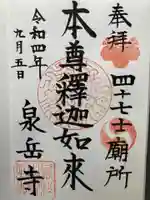 奉拝
四十七士廟所
本尊釋迦如來
泉岳寺
令和四年
九月五日